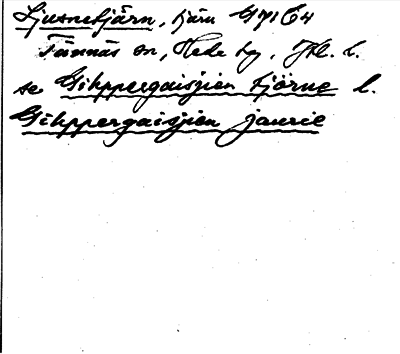 Ljusnetjärn, tjärn G71 C4
Tännäs sn, Hede tg, Jtl. l.
se Gihppergaisjien tjörne l.
Gihppergaisjien jaurie